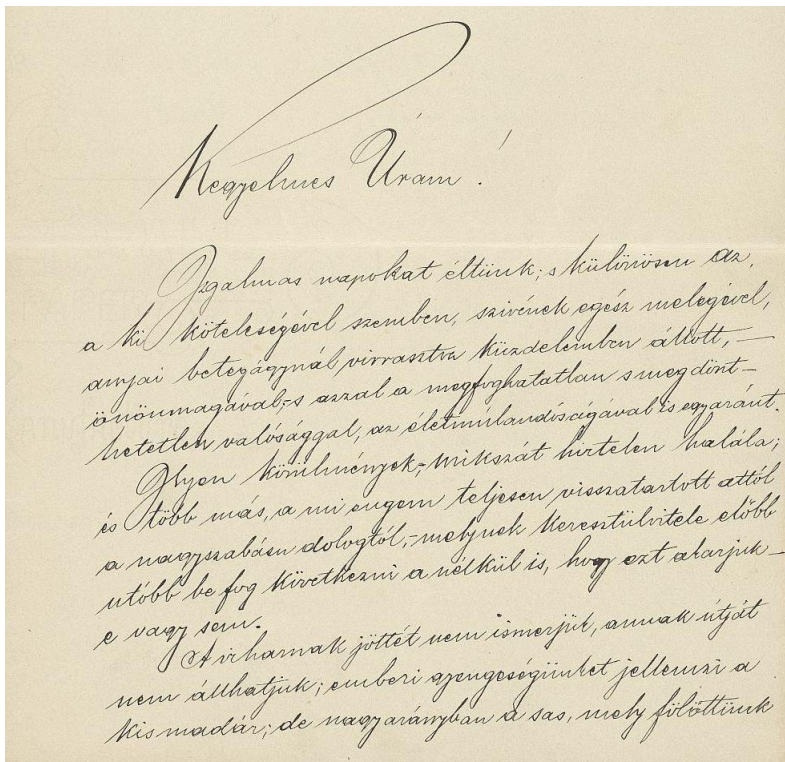 Kegyelmes Uram!
Izgalmas napokat éltünk; s különösen az,
a ki kötelességével szemben, szivének egész melegével,
anyai betegágynál virrasztva küzdelemben állott, —
önönmagával,-s azzal a megfoghatatlan s megdönt-
hetetlen valósággal, az életmúlandóságával is egyaránt.
Ilyen körülmények,-Mikszát hirtelen halála;
és több más, a mi engem teljesen visszatartott attól
a nagyszabásu dologtól,-melynek keresztülvitele előbb
utóbb be fog következni a nélkül is, hogy ezt akarjuk-
e vagy sem.
A viharnak jöttét nem ismerjük, annak útját
nem állhatjuk; emberi gyengeségünket jellemzi a
kis madár; de nagyarányban a sas, mely fölöttünk